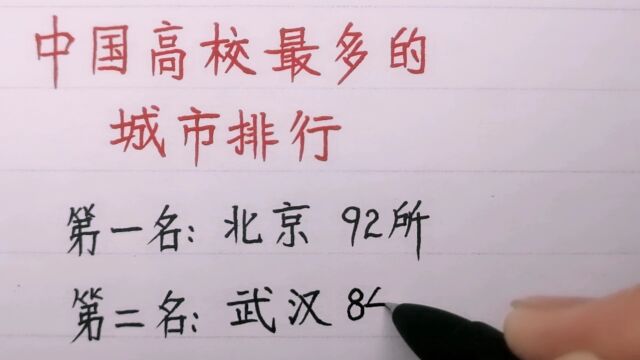 中国高校最多的
城市排行
第一名: 北京 92所
第二名: 武汉 8